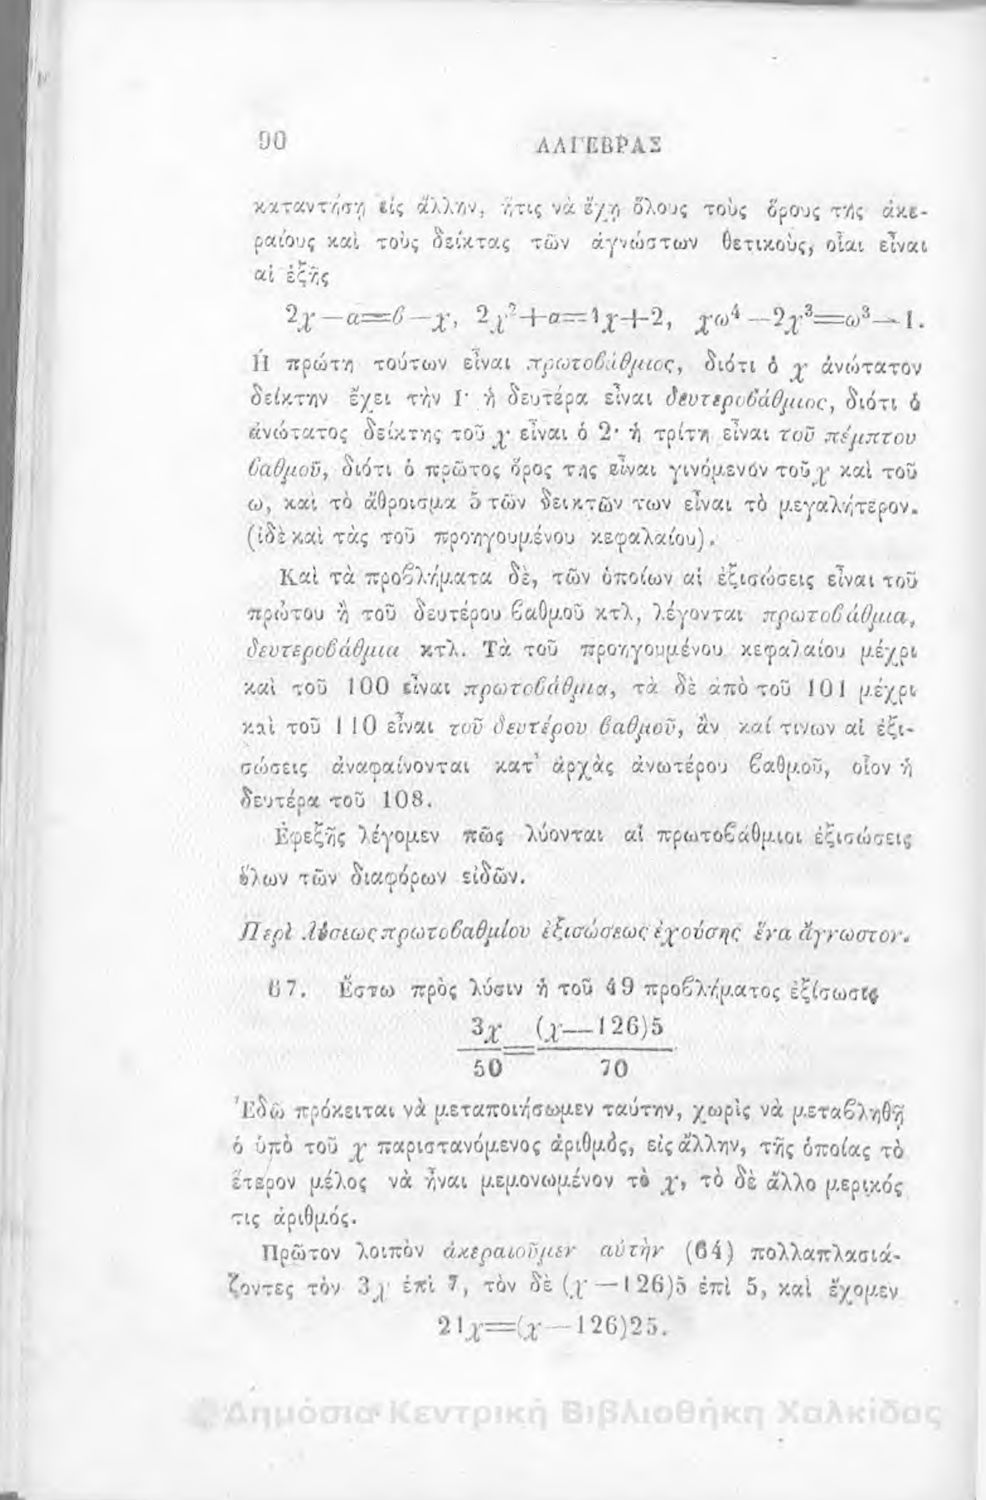 90 ΑΛΓΕΒΡΑΣ
καταντήσῃ εἰς ἄλλην, ἥτις νὰ ἔχῃ ὅλους τοὺς ὅρους τῆς ἀκε-
ραίους καὶ τοὺς δείκτας τῶν ἀγνώστων θετικοὺς, οἷαι εἶναι
αἱ ἑξῆς
2χ—α=ϐ—χ, 2χ²+α=1χ+2, χω⁴—2χ³=ω³—1.
Ἡ πρώτη τούτων εἶναι πρωτοϐάθμιος, διότι ὁ χ ἀνώτατον
δείκτην ἔχει τὴν 1· ἡ δευτέρα εἶναι δευτεροϐάθμιος, διότι ὁ
ἀνώτατος δείκτης τοῦ χ εἶναι ὁ 2· ἡ τρίτη εἶναι τοῦ πέμπτου
ϐαθμοῦ, διότι ὁ πρῶτος ὅρος της εἶναι γινόμενον τοῦ χ καὶ τοῦ
ω, καὶ τὸ ἄθροισμα 5 τῶν δεικτῶν των εἶναι τὸ μεγαλήτερον.
(ἰδὲ καὶ τὰς τοῦ προηγουμένου κεφαλαίου).
Καὶ τὰ προϐλήματα δὲ, τῶν ὁποίων αἱ ἐξισώσεις εἶναι τοῦ
πρώτου ἢ τοῦ δευτέρου ϐαθμοῦ κτλ, λέγονται πρωτοϐάθμια,
δευτεροϐάθμια κτλ. Τὰ τοῦ προηγουμένου κεφαλαίου μέχρι
καὶ τοῦ 100 εἶναι πρωτοϐάθμια, τὰ δὲ ἀπὸ τοῦ 101 μέχρι
καὶ τοῦ 110 εἶναι τοῦ δευτέρου ϐαθμοῦ, ἂν καί τινων αἱ ἐξι-
σώσεις ἀναφαίνονται κατ' ἀρχὰς ἀνωτέρου ϐαθμοῦ, οἷον ἡ
δευτέρα τοῦ 108.
Ἐφεξῆς λέγομεν πῶς λύονται αἱ πρωτοϐάθμιοι ἐξισώσεις
ὅλων τῶν διαφόρων εἰδῶν.
Περὶ λύσεως πρωτοϐαθμίου ἐξισώσεως ἐχούσης ἕνα ἄγνωστον.
67. Ἔστω πρὸς λύσιν ἡ τοῦ 49 προϐλήματος ἐξίσωσις
3χ (χ—126)5
=
50 70
Ἐδῶ πρόκειται νὰ μεταποιήσωμεν ταύτην, χωρὶς νὰ μεταϐληθῇ
ὁ ὑπὸ τοῦ χ παριστανόμενος ἀριθμὸς, εἰς ἄλλην, τῆς ὁποίας τὸ
ἕτερον μέλος νὰ ἦναι μεμονωμένον τὸ χ, τὸ δὲ ἄλλο μερικός
τις ἀριθμός.
Πρῶτον λοιπὸν ἀκεραιοῦμεν αὐτὴν (64) πολλαπλασιά-
ζοντες τὸν 3χ ἐπὶ 7, τὸν δὲ (χ—126)5 ἐπὶ 5, καὶ ἔχομεν
21χ=(χ—126)25.
Δημόσια Κεντρική Βιβλιοθήκη Χαλκίδας